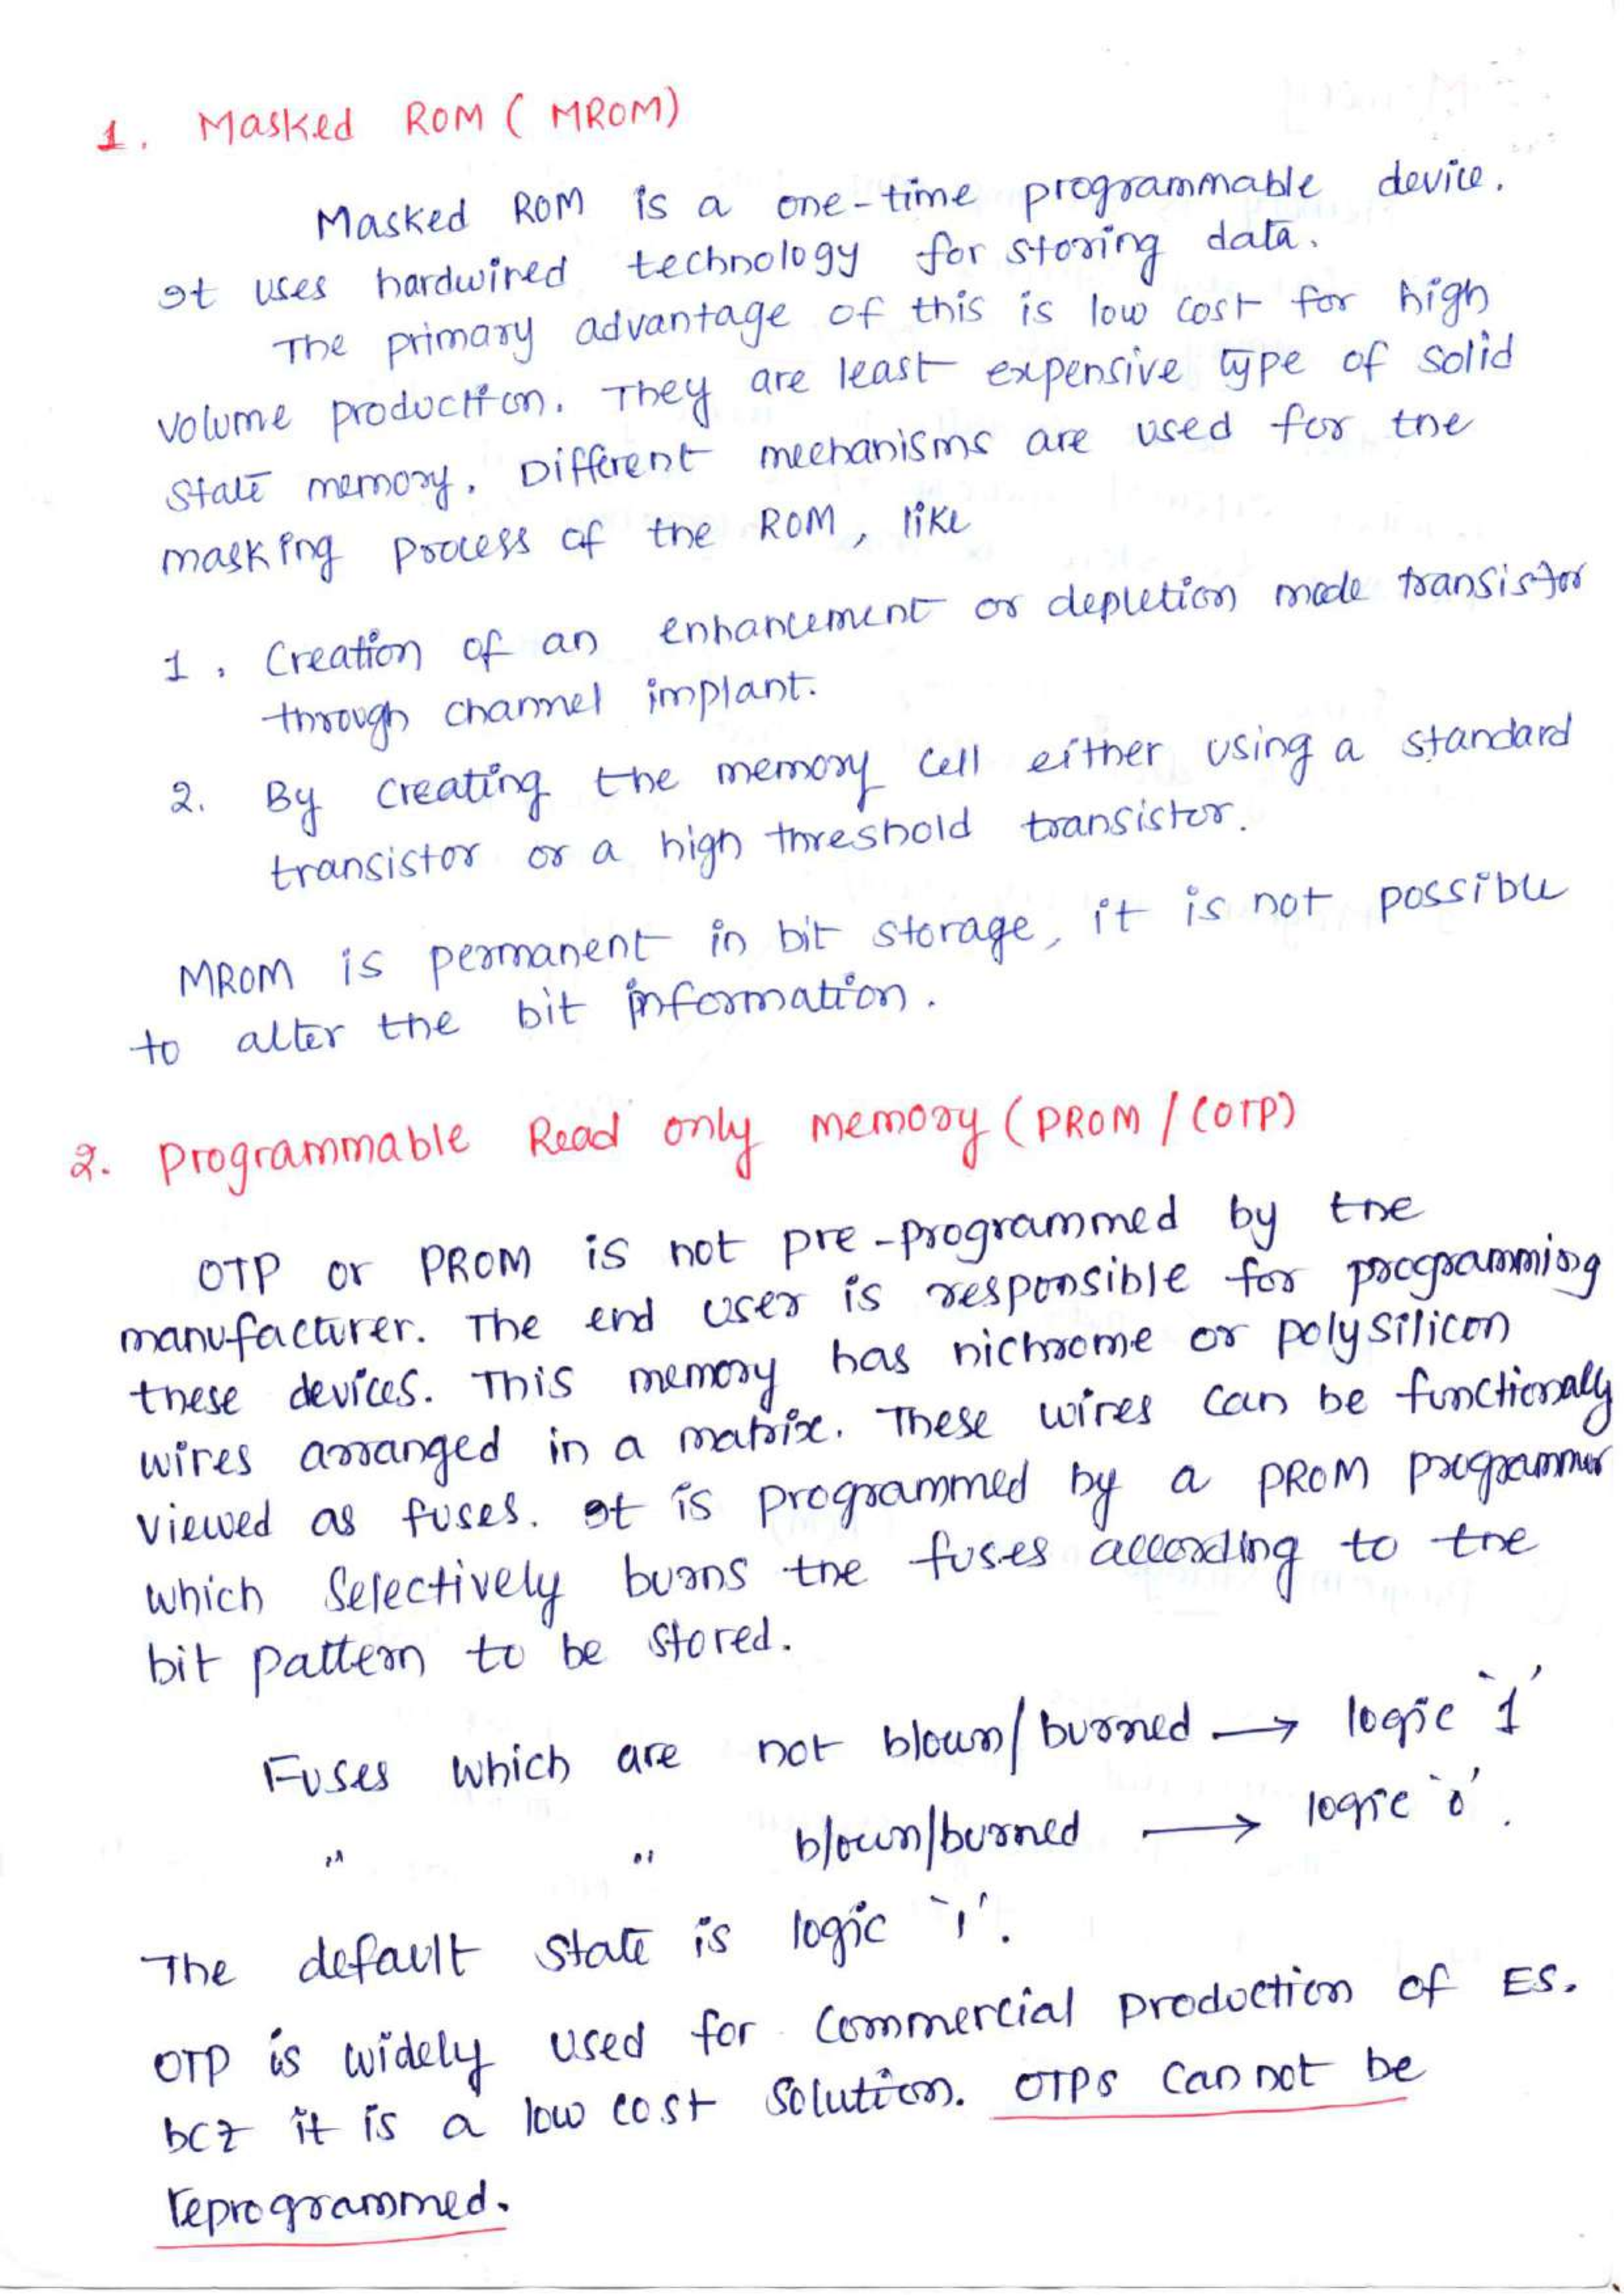 1. Masked ROM (MROM)
Masked ROM is a one-time programmable device.
It uses hardwired technology for storing data.
The primary advantage of this is low cost for high
volume production. They are least expensive type of solid
state memory. Different mechanisms are used for the
masking process of the ROM, like
1. Creation of an enhancement or depletion mode transistor
through channel implant.
2. By creating the memory cell either using a standard
transistor or a high threshold transistor.
MROM is permanent in bit storage, it is not possible
to alter the bit information.
2. Programmable Read only memory (PROM / (OTP)
OTP or PROM is not pre-programmed by the
manufacturer. The end user is responsible for programming
these devices. This memory has nichrome or polysilicon
wires arranged in a matrix. These wires can be functionally
viewed as fuses. It is programmed by a PROM programmer
which selectively burns the fuses according to the
bit pattern to be stored.
Fuses which are not blown/burned → logic '1'
" " blown/burned → logic '0'.
The default state is logic '1'.
OTP is widely used for commercial production of ES.
bcz it is a low cost solution. OTPs cannot be
reprogrammed.